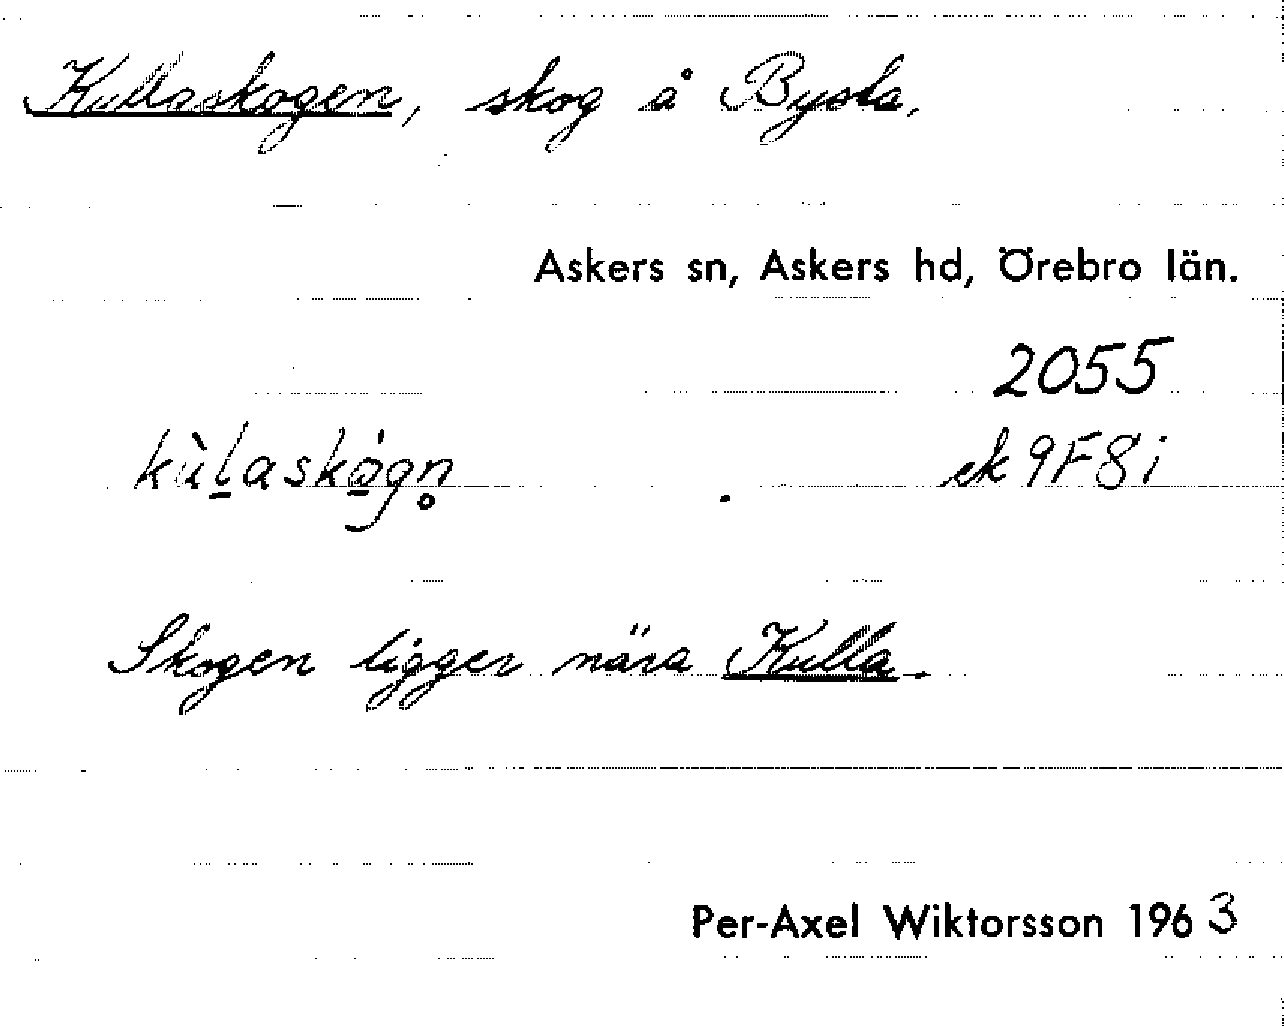 Kullaskogen, skog å Bysta,
Askers sn, Askers hd, Örebro län.
2055
kùlaskógn
ek 9F8i
Skogen ligger nära Kulla.
Per-Axel Wiktorsson 1963